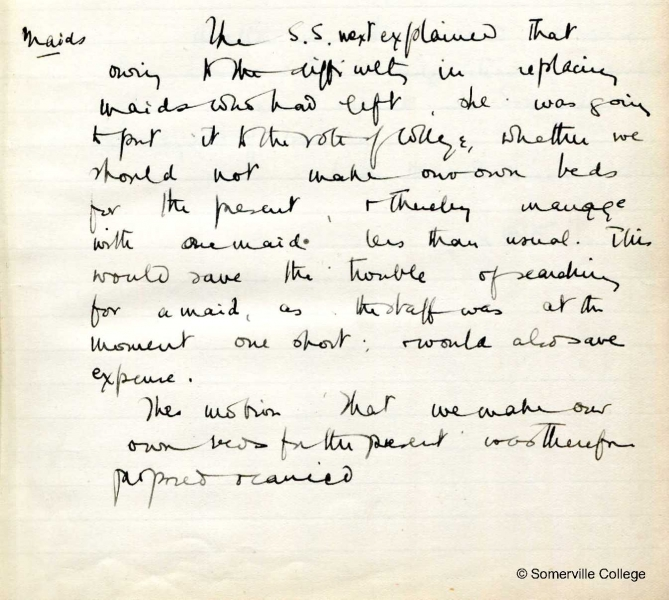 Maids
The S.S. next explained that
owing to the difficulty in replacing
maids who had left, she was going
to put it to the vote of College, whether we
should not make our own beds
for the present, & thereby manage
with one maid less than usual. This
would save the trouble of searching
for a maid, as the staff was at the
moment one short; & would also save
expense.
The motion that we make our
own beds for the present was therefore
proposed & carried
© Somerville College